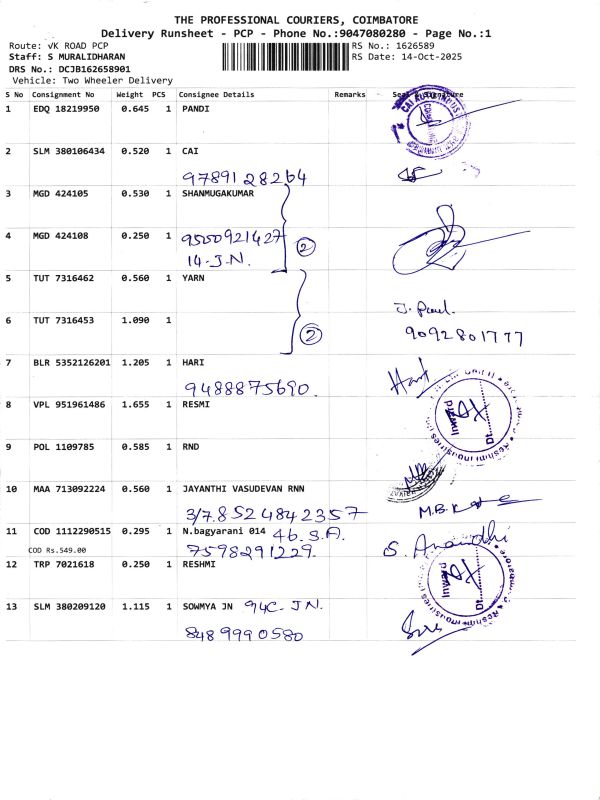 THE PROFESSIONAL COURIERS, COIMBATORE
Delivery Runsheet - PCP - Phone No.:9047080280 - Page No.:1
Route: VK ROAD PCP
RS No.: 1626589
Staff: S MURALIDHARAN
RS Date: 14-Oct-2025
DRS No.: DCJB162658901
Vehicle: Two Wheeler Delivery
S No Consignment No Weight PCS Consignee Details Remarks Seal & Signature
1 EDQ 18219950 0.645 1 PANDI
2 SLM 380106434 0.520 1 CAI
9789128264
3 MGD 424105 0.530 1 SHANMUGAKUMAR
4 MGD 424108 0.250 1 9500921427 2
14-J.N.
5 TUT 7316462 0.560 1 YARN
J. Paul
6 TUT 7316453 1.090 1 2 9092801777
7 BLR 5352126201 1.205 1 HARI Hari
9488875690.
8 VPL 951961486 1.655 1 RESMI
Inward
Dt.
9 POL 1109785 0.585 1 RND
10 MAA 713092224 0.560 1 JAYANTHI VASUDEVAN RNN
3/7.8524842357
11 COD 1112290515 0.295 1 N.bagyarani 014 46. S.A. S. Anandhi
COD Rs.549.00 7598291229.
12 TRP 7021618 0.250 1 RESHMI
Inward
Dt.
13 SLM 380209120 1.115 1 SOWMYA JN 94C- JN.
8489990580